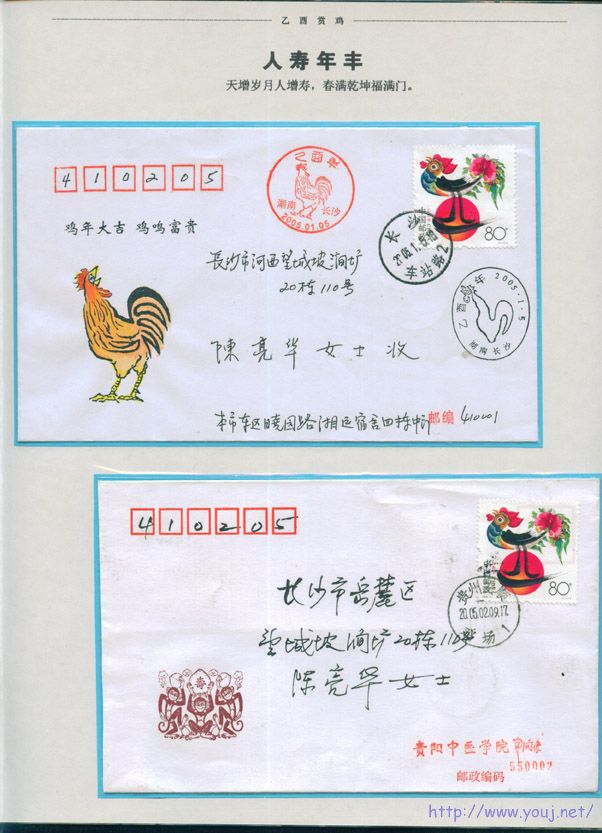 乙酉赏鸡
人寿年丰
天增岁月人增寿，春满乾坤福满门。
410205
乙酉年
湖南 长沙
2005.01.05
80分
鸡年大吉 鸡鸣富贵
长沙
车站路2
长沙市河西望城坡涧矿
20栋110号
乙酉年 2005.1.5
湖南长沙
陳亮华女士收
本市东区晓园路湘运宿舍四栋
邮编 410001
410205
80分
贵州
2005.02.09.17
长沙市岳麓区
望城坡涧矿20栋110号
陈亮华女士
春
贵阳中医学院
550002
邮政编码
http://www.youj.net/